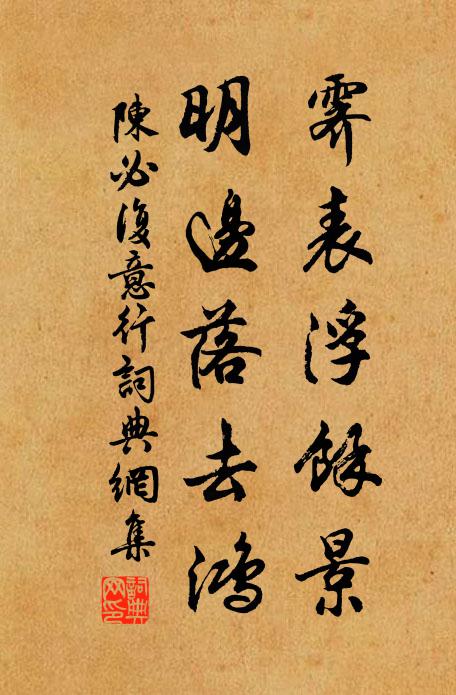 霽表浮餘景
明邊落去鴻
陳必復意行詞典網集
詞典
网印